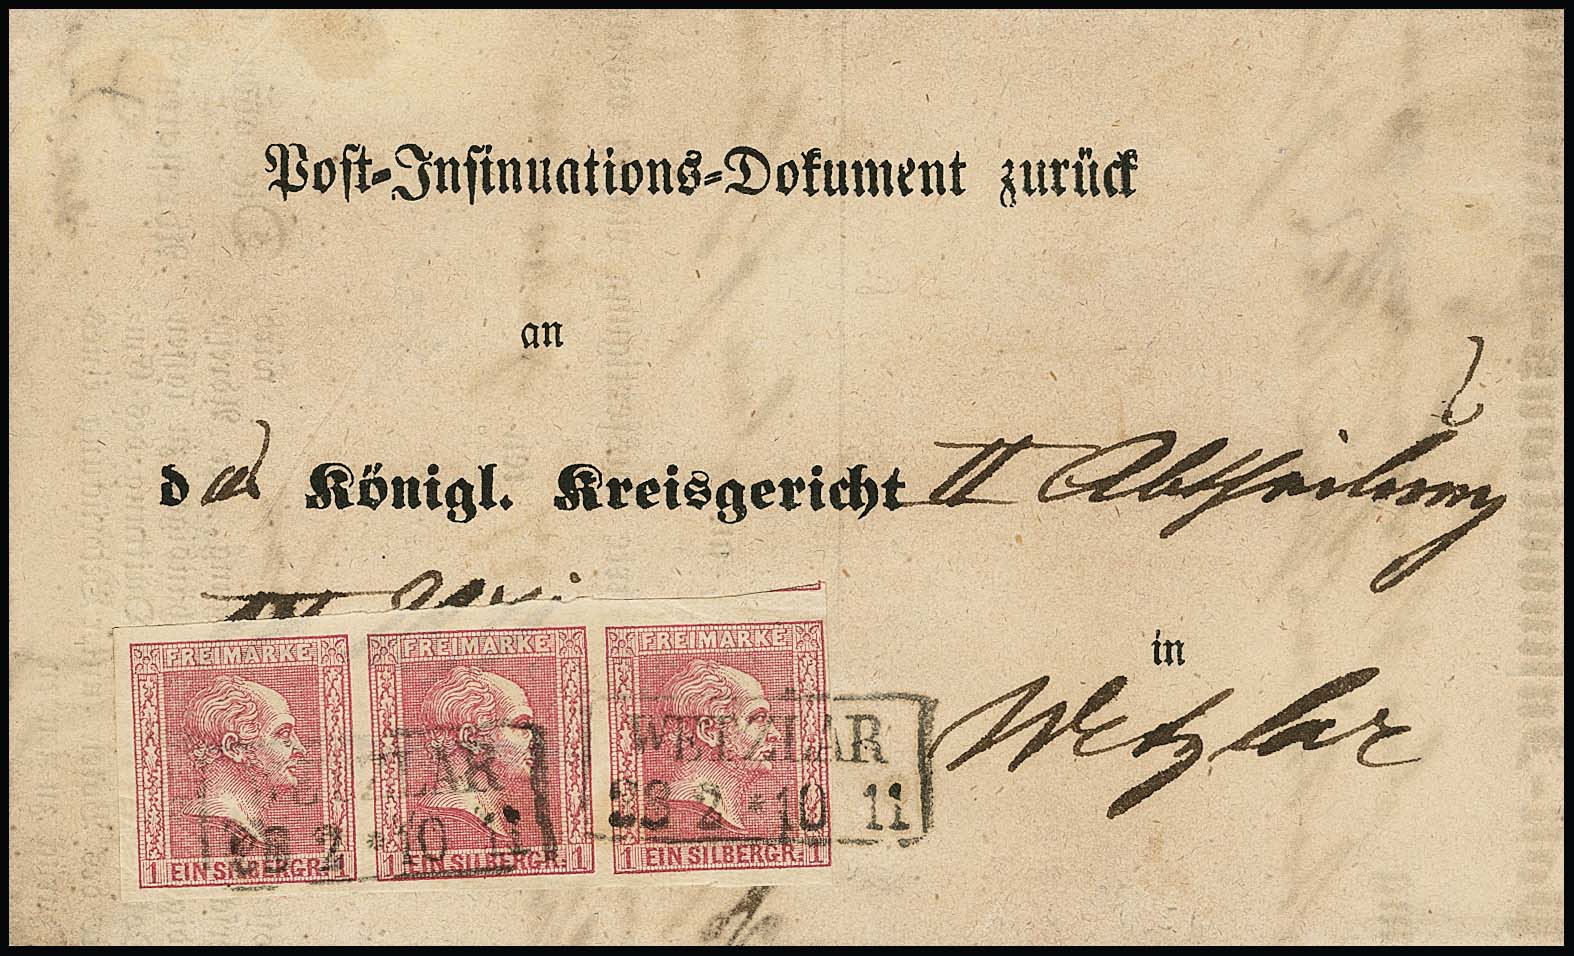 Post-Insinuations-Dokument zurück
an
das Königl. Kreisgericht II Abtheilung
in
Wetzlar
FREIMARKE FREIMARKE FREIMARKE
WETZLAR
28 2 * 10 11
WETZLAR
28 2 * 10 11
1 EIN SILBERGR. 1 1 EIN SILBERGR. 1 1 EIN SILBERGR. 1